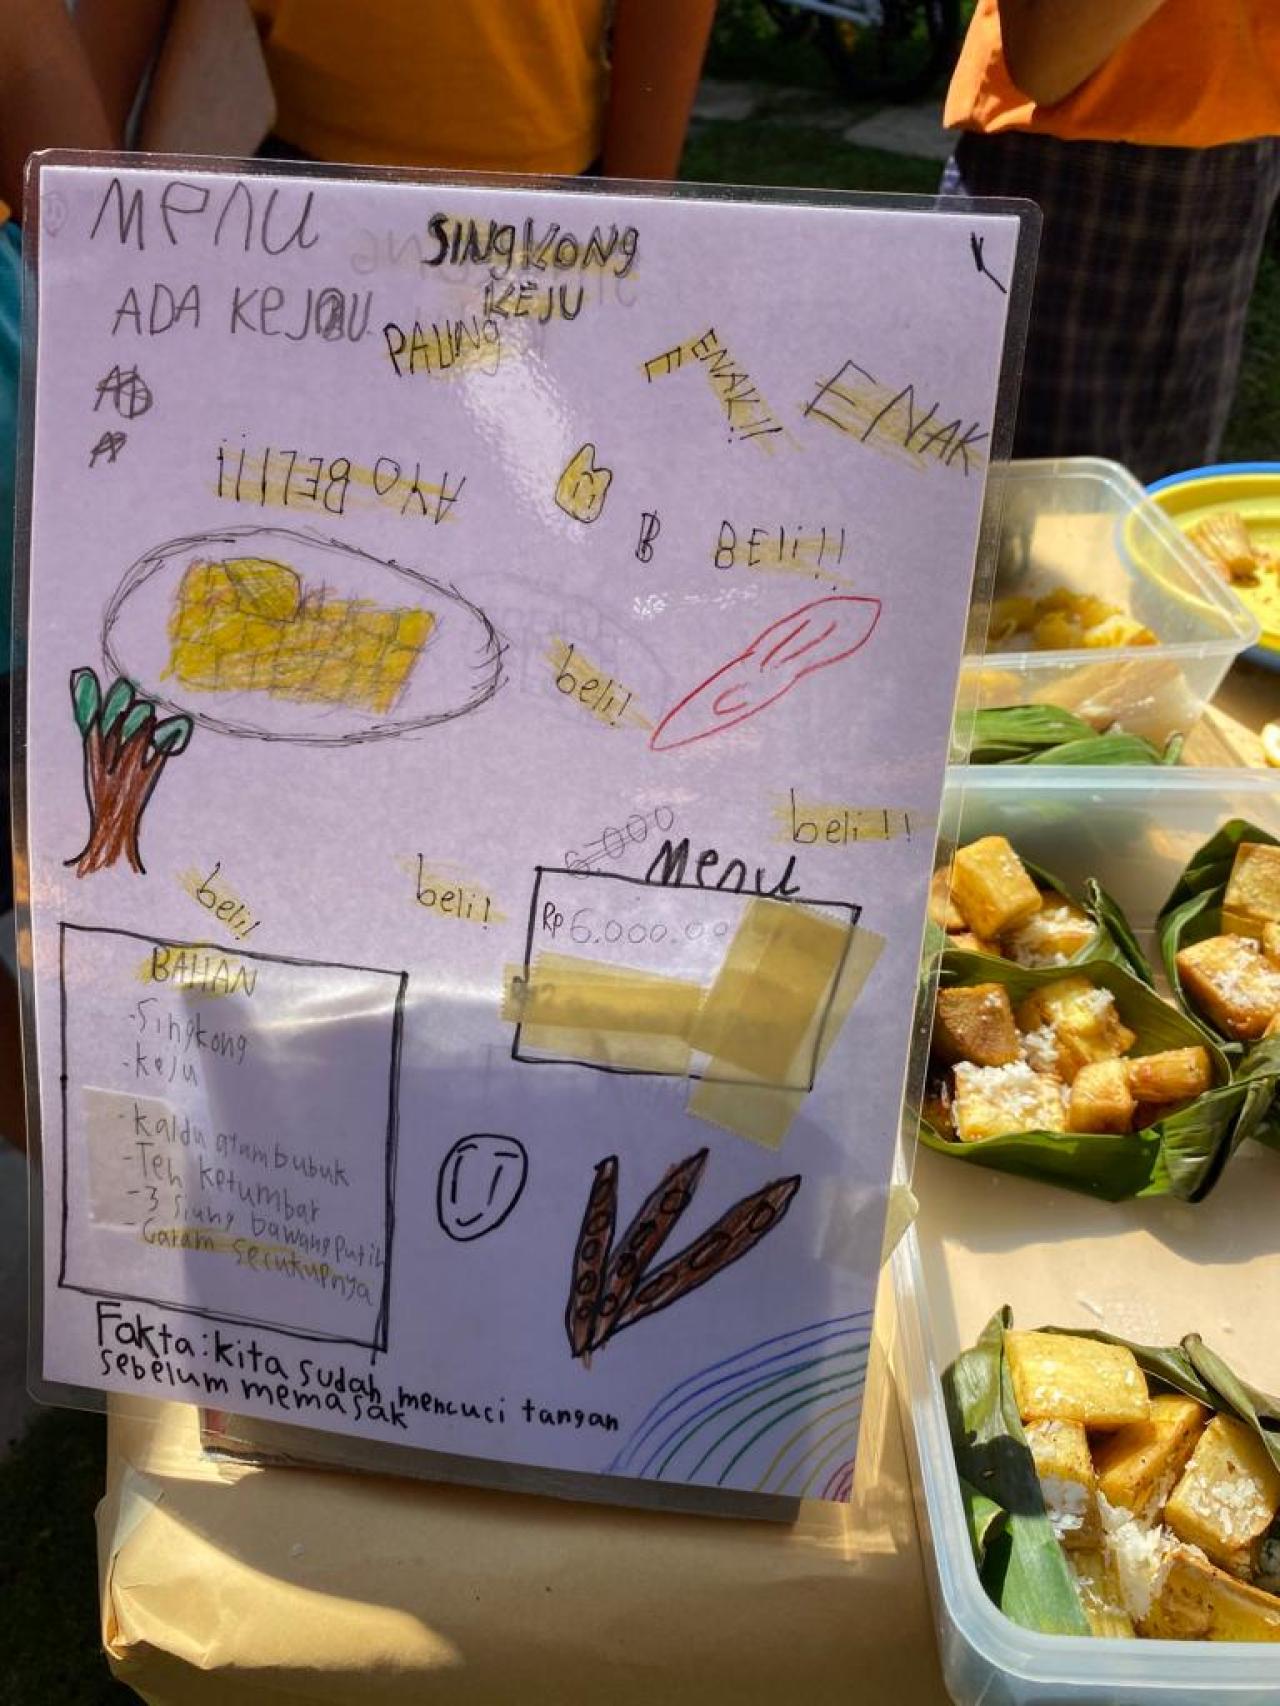 MENU
SINGKONG
KEJU
ADA KEJU
PALING
ENAK!!
ENAK
AYO BELI!!!
B BELI!!
beli!
6.000
beli!!
Menu
beli!
beli!
Rp 6.000.00
BAHAN
-Singkong
-keju
-kaldu ayam bubuk
-Teh ketumbar
-3 Siung bawang putih
-Garam secukupnya
Fakta: kita sudah mencuci tangan
sebelum memasak